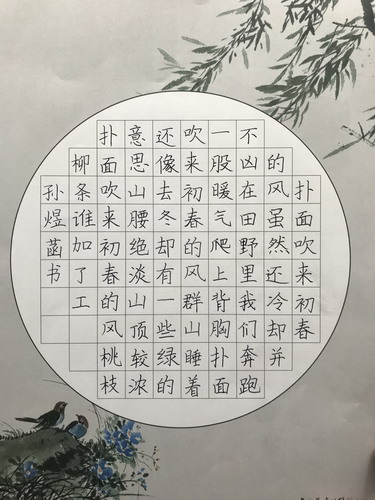 扑面吹来初春
的风虽然还冷却并
不凶在田野里我们奔跑
一股暖气爬上背胸扑面
吹来初春的风群山睡着
还像去冬却有一些绿的
意思山腰绝淡山顶较浓
扑面吹来初春的风桃枝
柳条谁加了工
孙煜菡书